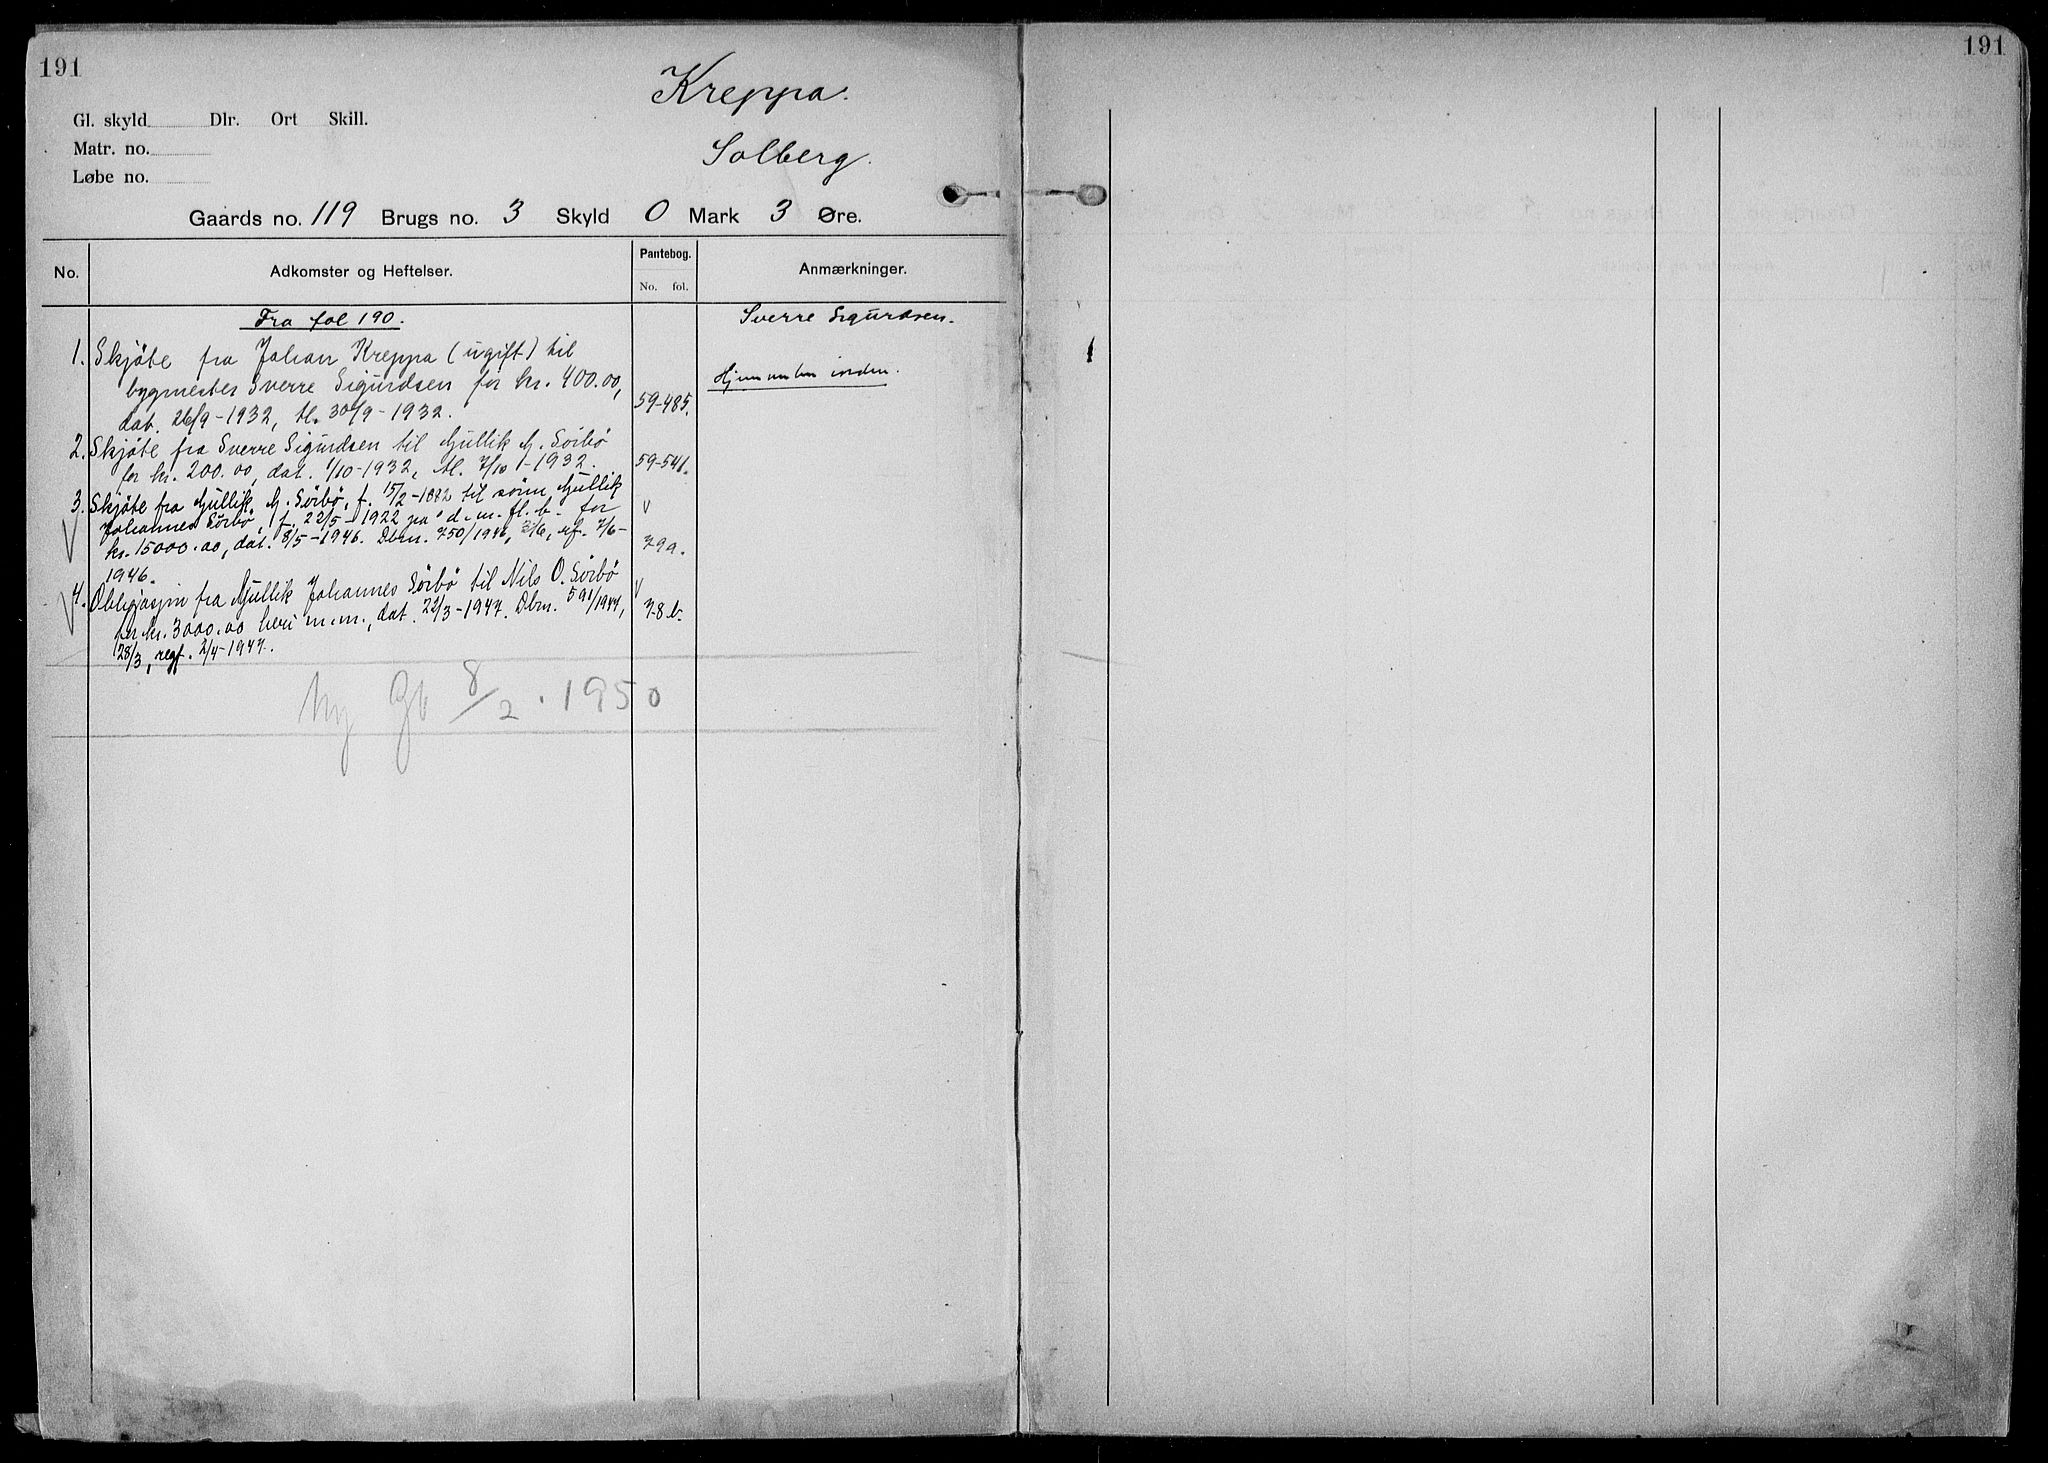 191
191
Kreppa.
Gl. skyld Dlr. Ort Skill.
Solberg.
Matr. no.
Løbe no.
Gaards no. 119 Brugs no. 3 Skyld 0 Mark 3 Øre.
No. Adkomster og Heftelser. Pantebog. No. fol. Anmærkninger.
Fra fol 190.
Sverre Sigurdsen.
1. Skjøte fra Johan Kreppa (ugift) til
bygmester Sverre Sigurdsen for kr. 400.00,
dat. 26/9-1932, tl. 30/9-1932. 59-485.
2. Skjøte fra Sverre Sigurdsen til Gullik G. Sörbö
for kr. 200.00, dat. 1/10-1932, tl. 7/10-1932. 59-541.
3. Skjøte fra Gullik G. Sörbö, f. 15/2-1882 til sönn Gullik
Johannes Sörbö, f. 22/5-1922 på d.m.fl.b. for
kr. 15000.00, dat. 8/5-1946. Dbnr. 750/1946, 3/6, rf. 7/6-
1946. 79a.
4. Obligasjon fra Gullik Johannes Sörbö til Nils O. Sörbö
for kr. 3000.00 heri m.m., dat. 22/3-1947. Dbnr. 591/1947,
28/3, regf. 2/4-1947. 78b.
Ny Gb 8/2.1950